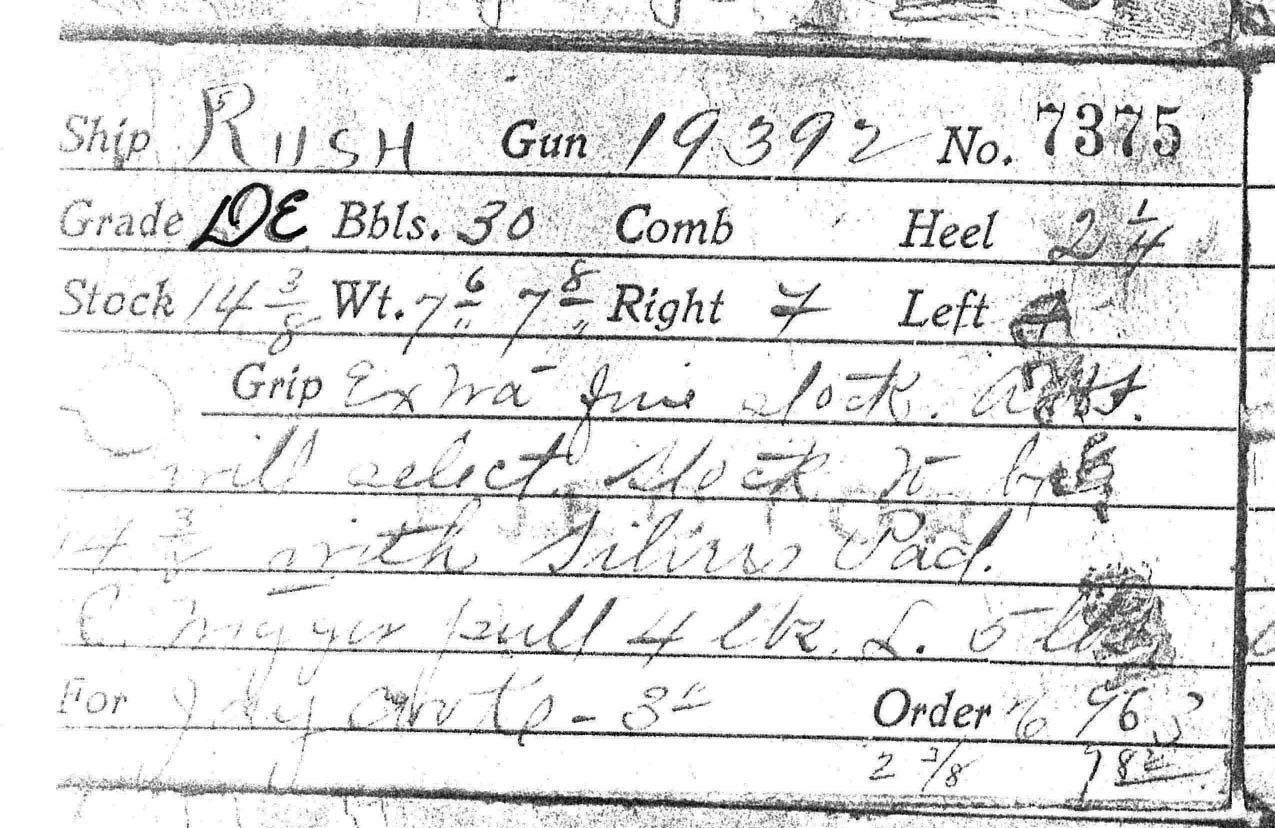 Ship RUSH Gun 19392 No. 7375
Grade LDE Bbls. 30 Comb Heel 2 1/4
Stock 14 3/8 Wt. 7 6/" 7 8/" Right 7 Left
Grip Extra fine stock.
will select. Stock to be
14 3/8 with Silvers Pad.
trigger pull 4 lbs. L. 5 lbs
For Order
2 3/8